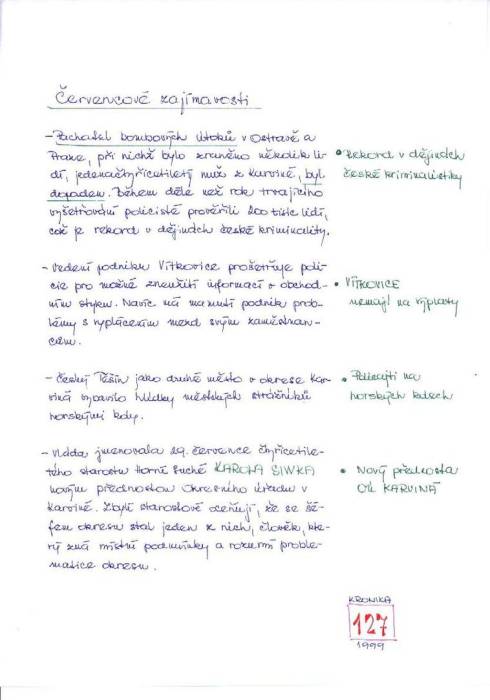 Červencové zajímavosti
- Pachatel bombových útoků v Ostravě a
Praze, při nichž bylo zraněno několik li-
dí, jedenačtyřicetiletý muž z Karviné, byl
dopaden. Během déle než rok trvajícího
vyšetřování policisté prověřili 200 tisíc lidí,
což je rekord v dějinách české kriminality.
• Rekord v dějinách
české kriminalistiky
- Vedení podniku Vítkovice prošetřuje poli-
cie pro možné zneužití informací v obchod-
ním styku. Navíc má mamutí podnik prob-
lémy s vyplácením mezd svým zaměstnan-
cům.
• VÍTKOVICE
nemají na výplaty
- Český Těšín jako druhé město v okrese Kar-
viná vybavilo hlídky městských strážníků
horskými koly.
• Policajti na
horských kolech
- Vláda jmenovala 29. července čtyřicetile-
tého starostu Horní Suché KAROLA SIWKA
novým přednostou Okresního úřadu v
Karviné. Zbylí starostové oceňují, že se šé-
fem okresu stal jeden z nich, člověk, kte-
rý zná místní podmínky a rozumí proble-
matice okresu.
• Nový přednosta
OÚ KARVINÁ
KRONIKA
127
1999